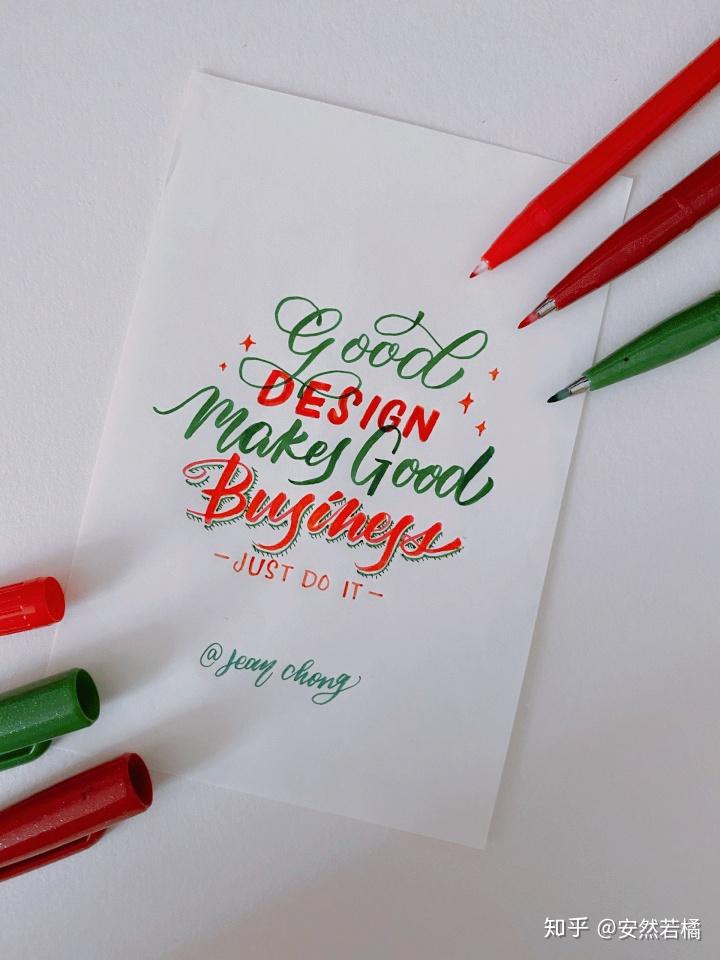 Good
DESIGN
Makes Good
Business
-JUST DO IT-
@jean chong
知乎 @安然若橘